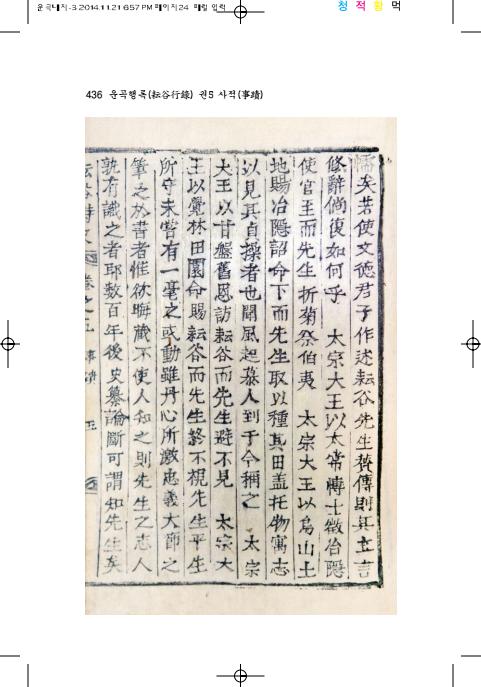 운곡대지-3 2014.11.21 6:57 PM 페이지24 매월 입력
청 적 황 먹
436 운곡행록(耘谷行錄) 권5 사적(事蹟)
懦矣若使文德君子作述耘谷先生贊傳則其立言
修辭倘復如何乎 太宗大王以太常博士徵冶隱
使官王而先生折菊祭伯夷 太宗大王以烏山土
地賜冶隱詔命下而先生取以種其田盖托物寓志
以見其貞操者也聞風起慕人到于今稱之 太宗
大王以甘盤舊恩訪耘谷而先生避不見 太宗大
王以覺林田園命賜耘谷而先生終不視先生平生
所守未嘗有一毫之或動雖丹心所激忠義大節之
筆之於書者惟欲晦藏不使人知之則先生之志人
孰有識之者耶数百年後 史纂論斷可謂知先生矣
耘谷詩史 卷之五 事蹟 五